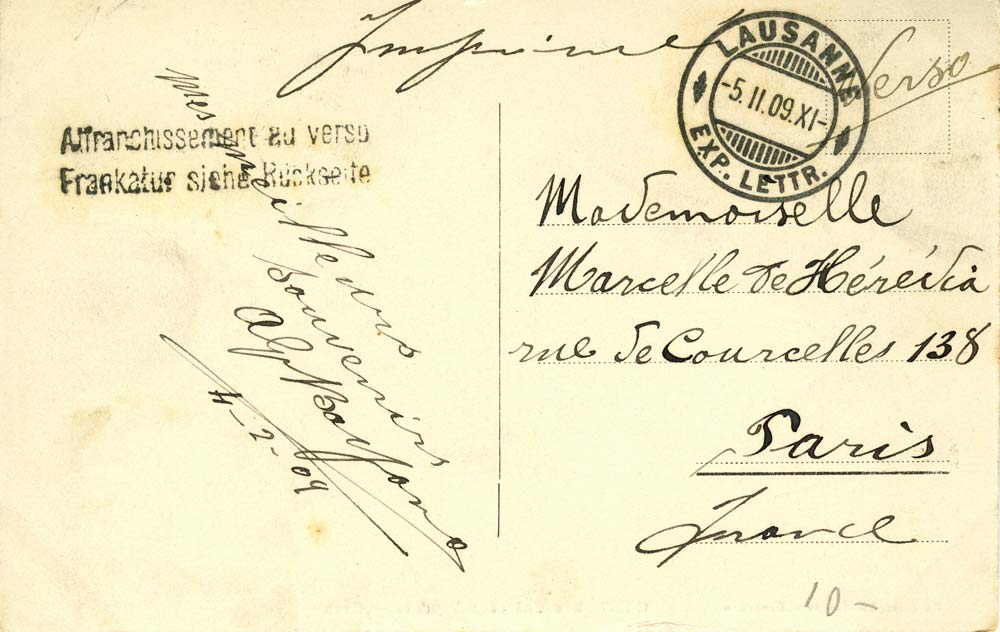 Imprimé
Verso
LAUSANNE
-5.II.09.XI-
EXP. LETTR.
Affranchissement au verso
Frankatur siehe Rückseite
mes meilleurs
souvenirs
4-2-09
Mademoiselle
Marcelle de Hérédia
rue de Courcelles 138
Paris
France
10-